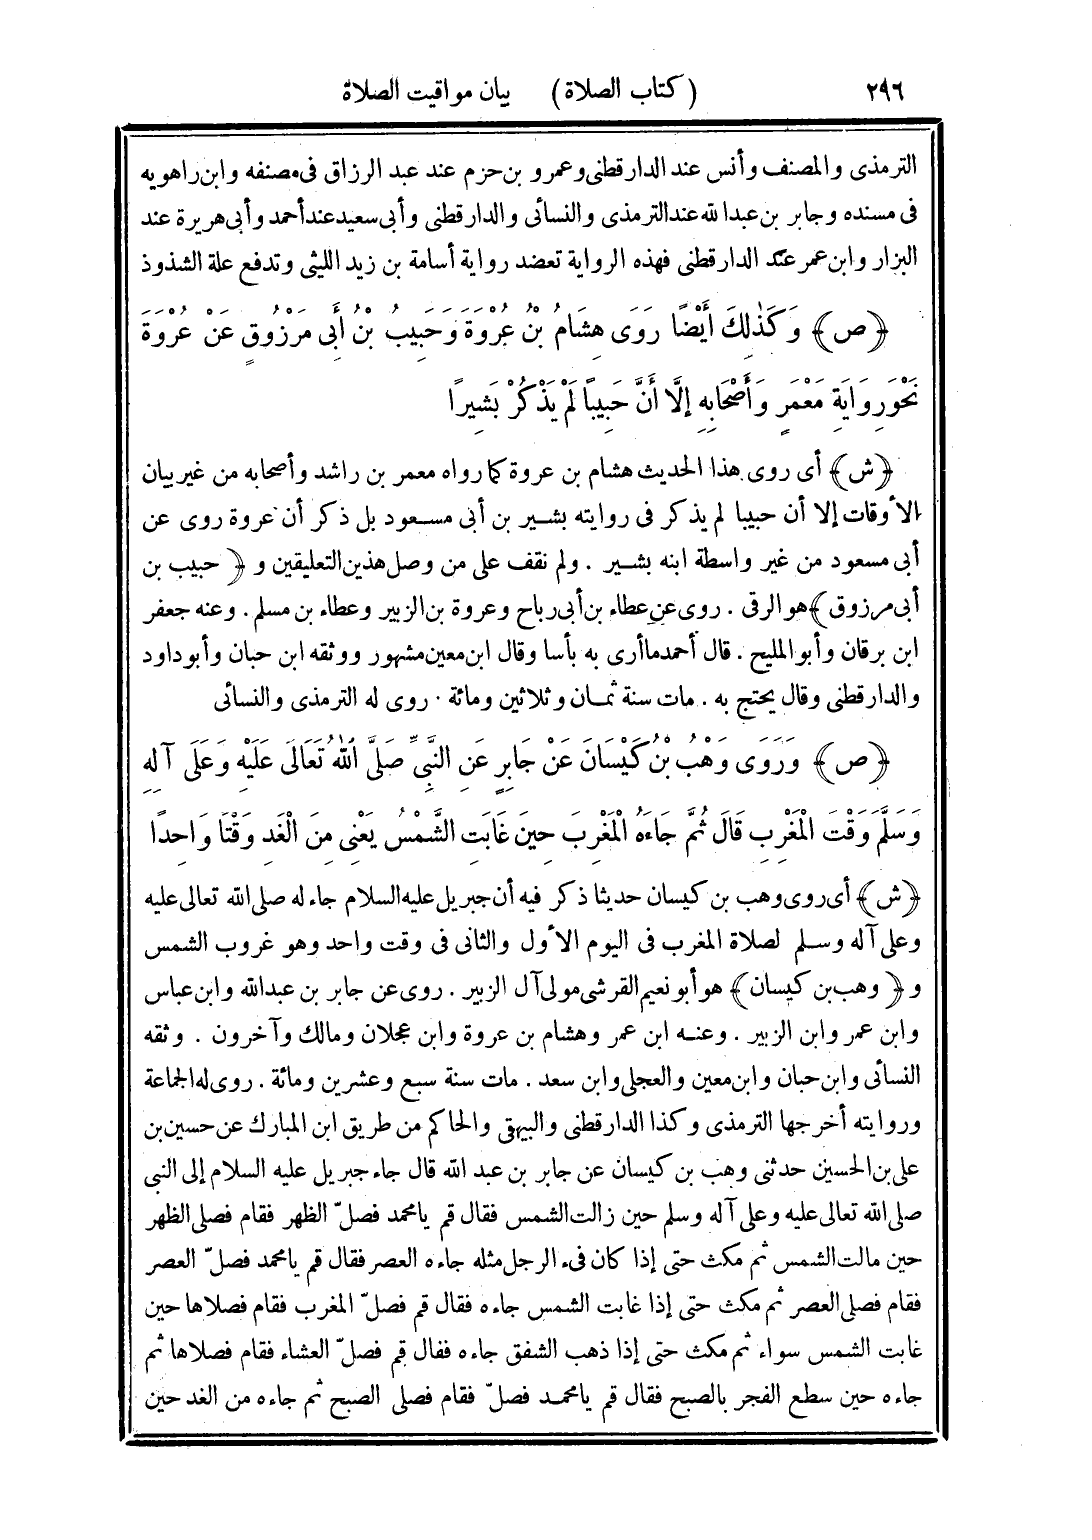 ٢٩٦ (كتاب الصلاة) بيان مواقيت الصلاة
الترمذى والمصنف وأنس عند الدارقطنى وعمرو بن حزم عند عبد الرزاق فى مصنفه وابن راهويه
فى مسنده وجابر بن عبدالله عند الترمذى والنسائى والدارقطنى وأبى سعيد عند أحمد وأبى هريرة عند
البزار وابن عمر عند الدارقطنى فهذه الرواية تعضد رواية أسامة بن زيد الليثى وتدفع علة الشذوذ
﴿ص﴾ وَكَذٰلِكَ أَيْضًا رَوَى هِشَامُ بْنُ عُرْوَةَ وَحَبِيبُ بْنُ أَبِى مَرْزُوقٍ عَنْ عُرْوَةَ
نَحْوَ رِوَايَةِ مَعْمَرٍ وَأَصْحَابِهِ إِلَّا أَنَّ حَبِيبًا لَمْ يَذْكُرْ بَشِيرًا
﴿ش﴾ أى روى هذا الحديث هشام بن عروة كما رواه معمر بن راشد وأصحابه من غير بيان
الأوقات إلا أن حبيبا لم يذكر فى روايته بشير بن أبى مسعود بل ذكر أن عروة روى عن
أبى مسعود من غير واسطة ابنه بشير . ولم نقف على من وصل هذين التعليقين و ﴿حبيب بن
أبى مرزوق﴾ هو الرقى . روى عن عطاء بن أبى رباح وعروة بن الزبير وعطاء بن مسلم . وعنه جعفر
ابن برقان وأبو المليح . قال أحمد ما أرى به بأسا وقال ابن معين مشهور ووثقه ابن حبان وأبو داود
والدارقطنى وقال يحتج به . مات سنة ثمان وثلاثين ومائة . روى له الترمذى والنسائى
﴿ص﴾ وَرَوَى وَهْبُ بْنُ كَيْسَانَ عَنْ جَابِرٍ عَنِ النَّبِىِّ صَلَّى اللهُ تَعَالَى عَلَيْهِ وَعَلَى آلِهِ
وَسَلَّمَ وَقْتَ الْمَغْرِبِ قَالَ ثُمَّ جَاءَهُ الْمَغْرِبَ حِينَ غَابَتِ الشَّمْسُ يَعْنِى مِنَ الْغَدِ وَقْتًا وَاحِدًا
﴿ش﴾ أى روى وهب بن كيسان حديثا ذكر فيه أن جبريل عليه السلام جاء له صلى الله تعالى عليه
وعلى آله وسلم لصلاة المغرب فى اليوم الأول والثانى فى وقت واحد وهو غروب الشمس
و ﴿وهب بن كيسان﴾ هو أبو نعيم القرشى مولى آل الزبير . روى عن جابر بن عبدالله وابن عباس
وابن عمر وابن الزبير . وعنه ابن عمر وهشام بن عروة وابن عجلان ومالك وآخرون . وثقه
النسائى وابن حبان وابن معين والعجلى وابن سعد . مات سنة سبع وعشرين ومائة . روى له الجماعة
وروايته أخرجها الترمذى وكذا الدارقطنى والبيهقى والحاكم من طريق ابن المبارك عن حسين بن
على بن الحسين حدثنى وهب بن كيسان عن جابر بن عبد الله قال جاء جبريل عليه السلام إلى النبى
صلى الله تعالى عليه وعلى آله وسلم حين زالت الشمس فقال قم يا محمد فصلّ الظهر فقام فصلى الظهر
حين مالت الشمس ثم مكث حتى إذا كان فىء الرجل مثله جاءه العصر فقال قم يا محمد فصلّ العصر
فقام فصلى العصر ثم مكث حتى إذا غابت الشمس جاءه فقال قم فصلّ المغرب فقام فصلاها حين
غابت الشمس سواء ثم مكث حتى إذا ذهب الشفق جاءه فقال قم فصلّ العشاء فقام فصلاها ثم
جاءه حين سطع الفجر بالصبح فقال قم يا محمد فصلّ فقام فصلى الصبح ثم جاءه من الغد حين